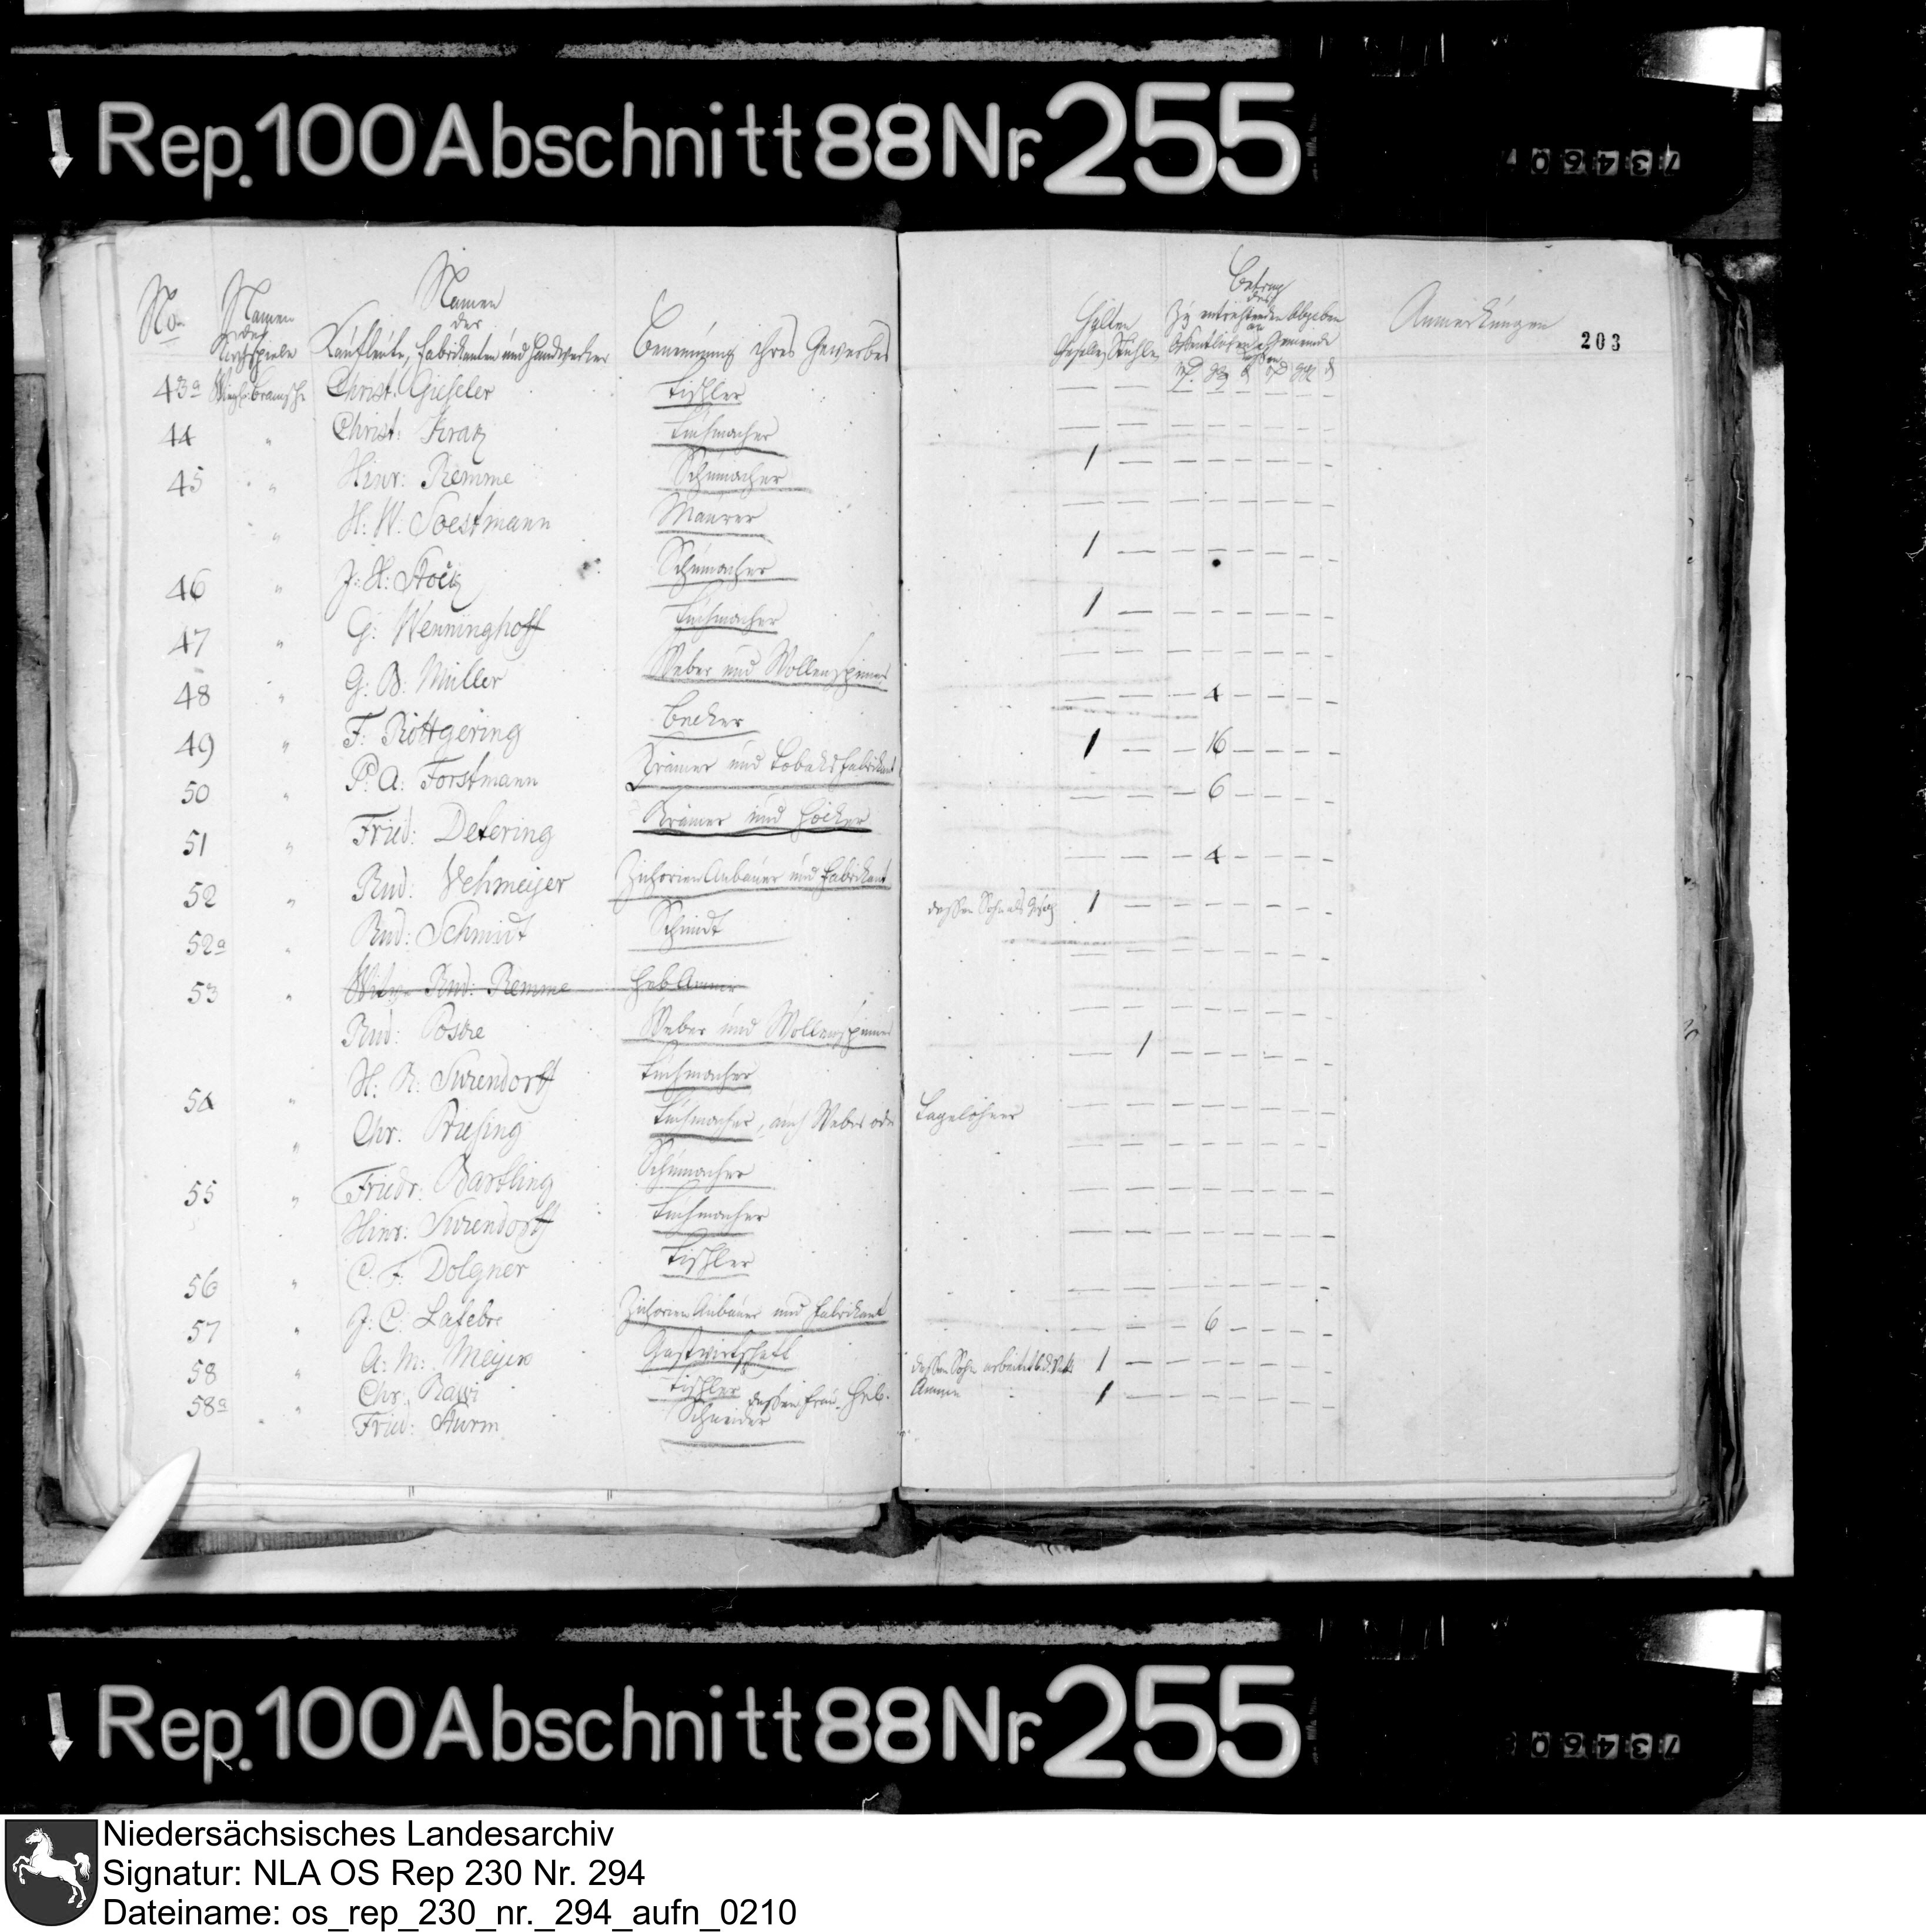 Rep. 100 Abschnitt 88 Nr. 255
No. Namen der Kirchspiele Namen der Kaufleute, Fabrikanten und Handwerker Benennung ihres Gewerbes Gesellen Stühle Betrag der Zu entrichtenden Abgaben an öffentlichen Gemeinde Anmerkungen 203
43a Christ: Gieseler Tischler — — — — — — — —
44 " Christ: Kratz Tuchmacher — — — — — — — —
45 " Hinr: Remme Schumacher 1 — — — — — — —
" H: W. Soestmann Maurer — — — — — — — —
46 " J: H: Stock Schumacher 1 — — — — — — —
47 " G: Wenninghoff Tuchmacher 1 — — — — — — —
48 " G: B: Müller Weber und Wollenspinner — — — — — — — —
49 " F: Röttgering Becker — — — 4 — — — —
50 " P: A: Forstmann Krämer und Tobaksfabrikant 1 — — 16 — — — —
51 " Fried: Detering Krämer und Höcker — — — 6 — — — —
52 " Rud: Vehmeijer Zichorien Anbauer und Fabrikant — — — 4 — — — —
52a " Rud: Schmidt Schmidt dessen Sohn als 1 — — — — — — —
53 " Witwe Rud: Remme Heb Amme — — — — — — — —
Rud: Poske Weber und Wollenspinner — — — — — — — —
54 " H: R: Surendorff Tuchmacher — 1 — — — — — —
" Chr: Priesing Tuchmacher, auch Weber oder Tagelöhner — — — — — — — —
55 " Friedr: Bartling Schumacher — — — — — — — —
Hinr: Surendorff Tuchmacher — — — — — — — —
56 " C: F: Dolgner Tischler — — — — — — — —
57 " J: C: Lafebre Zichorien Anbauer und Fabrikant — — — — — — — —
58 " A: M: Meijer Gastwirtschaft — — — 6 — — — —
58a " Chr: Tischler dessen Frau Heb- Amme dessen Sohn arbeitet 1 — — — — — — —
Fried: Sturm Schneider 1 — — — — — — —
Rep. 100 Abschnitt 88 Nr. 255
Niedersächsisches Landesarchiv
Signatur: NLA OS Rep 230 Nr. 294
Dateiname: os_rep_230_nr._294_aufn_0210